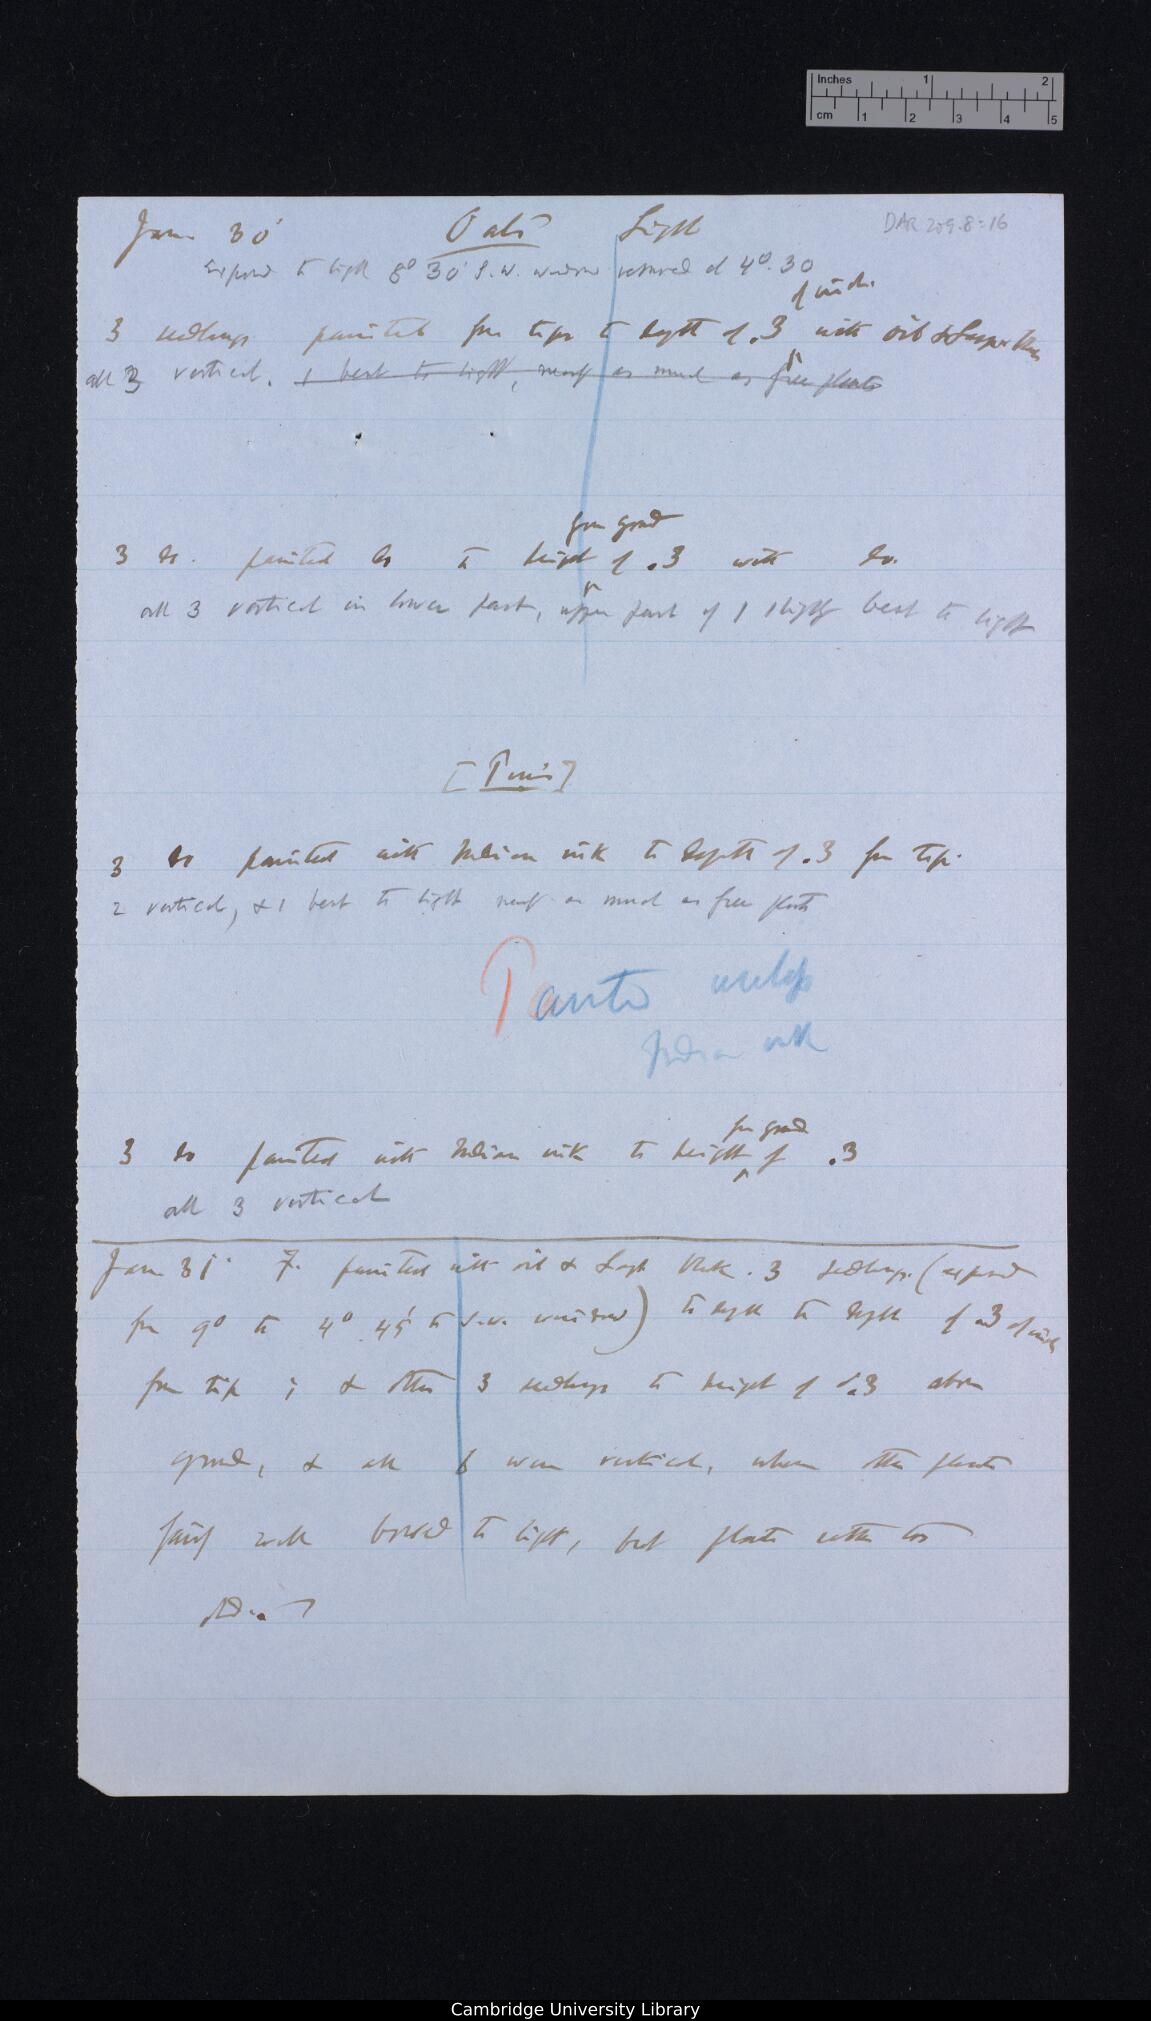 Inches 1 2
cm 1 2 3 4 5
DAR 209.8:16
Jan. 30' Oats Light
Exposed to light 8° 30' S.W. window removed at 4°. 30
of inch.
3 seedlings painted from tips to depth of .3 with oil & Lamp black
all 3 vertical. 1 bent to light, nearly as much as free plants
from ground
3 do. painted do to height of .3 with do.
all 3 vertical in lower part, upper part of 1 slightly bent to light
3 do painted with Indian ink to depth of .3 from tip.
2 vertical, & 1 bent to light nearly as much as free plants
Indian ink
from ground
3 do painted with Indian ink to height of .3
all 3 vertical
Jan 31' painted with oil & Lamp Black. 3 seedlings (exposed
from 9° to 4° 45' to S.W. window) to depth of .3 of inch
from tip; & other 3 seedlings to height of .3 above
ground, & all 6 were vertical, when other plants
fairly well bowed to light, but plants rather too
old
Cambridge University Library